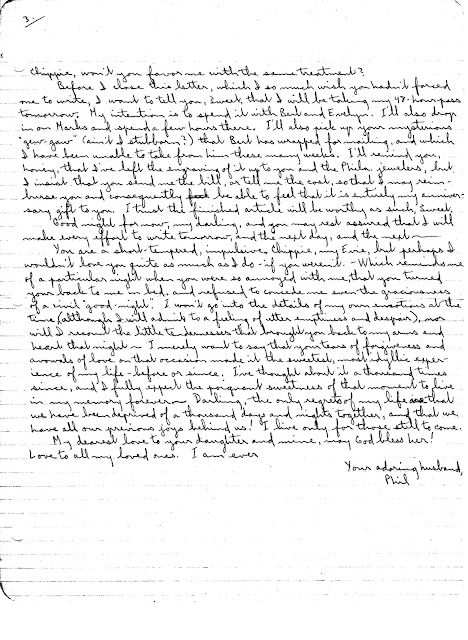 3.
Chippie, won't you favor me with the same treatment?
Before I close this letter, which I so much wish you hadn't forced
me to write, I want to tell you, Sweet, that I will be taking my 48-hour pass
tomorrow. My intention is to spend it with Bert and Evelyn. I'll also drop
in on Marks and spend a few hours there. I'll also pick up your mysterious
"gew-gaw" (ain't I stubborn?) that Bert has wrapped for mailing, and which
I have been unable to take from him these many weeks. I'll remind you,
honey, that I've left the engraving of it up to you and the Phila. jewelers, but
I insist that you send me the bill, or tell me the cost, so that I may reim-
burse you and consequently be able to feel that it is entirely my anniver-
sary gift to you. I trust the finished article will be worthy as such, Sweet.
Good night for now, my darling, and you may rest assured that I will
make every effort to write tomorrow, and the next day, and the next —
You are a short-tempered, impulsive, Chippie, my Evie, but perhaps I
wouldn't love you quite as much as I do - if you weren't. - Which reminds me
of a particular night when you were so annoyed with me, that you turned
your back to me in bed, and refused to concede me even the graciousness
of a civil "good night". I won't go into the details of my own emotions at the
time (although I will admit to a feeling of utter emptiness and despair), nor
will I recount the little tendernesses that brought you back to my arms and
heart that night — I merely want to say that your tears of forgiveness and
avowals of love on that occasion made it the sweetest, most idyllic exper-
ience of my life - before or since. I've thought about it a thousand times
since, and I fully expect the poignant sweetness of that moment to live
in my memory forever — Darling, the only regrets of my life that
we have been deprived of a thousand days and nights together, and that we
have all our previous joys behind us! I live only for those still to come.
My dearest love to your daughter and mine, may God bless her!
Love to all my loved ones. I am ever
Your adoring husband,
Phil